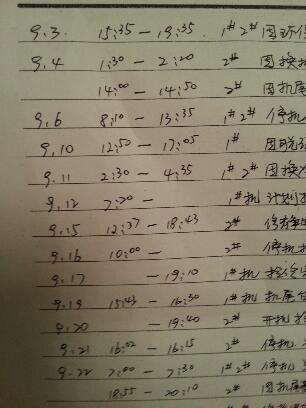 9.3 15:35 — 19:35 1# 2# 因环保
9.4 1:30 — 2:20 2# 因换
14:00 — 14:50 2# 因机尾
9.6 8:10 — 13:35 1# 2# 停机
9.10 12:50 — 17:05 1# 因脱
9.11 2:30 — 4:35 1# 2# 因换
9.12 7:20 — 1#机 计划
9.15 12:37 — 18:43 2#
9.16 10:00 — 2# 停机
9.17 — 19:10 1#机
9.19 15:43 — 16:30 1#机 机尾
9.20 — 19:40 2# 开机
9.21 16:02 — 16:15 2# 停机
9.22 7:00 — 7:30 1# 2# 停机
18:55 — 20:10 2# 因机尾